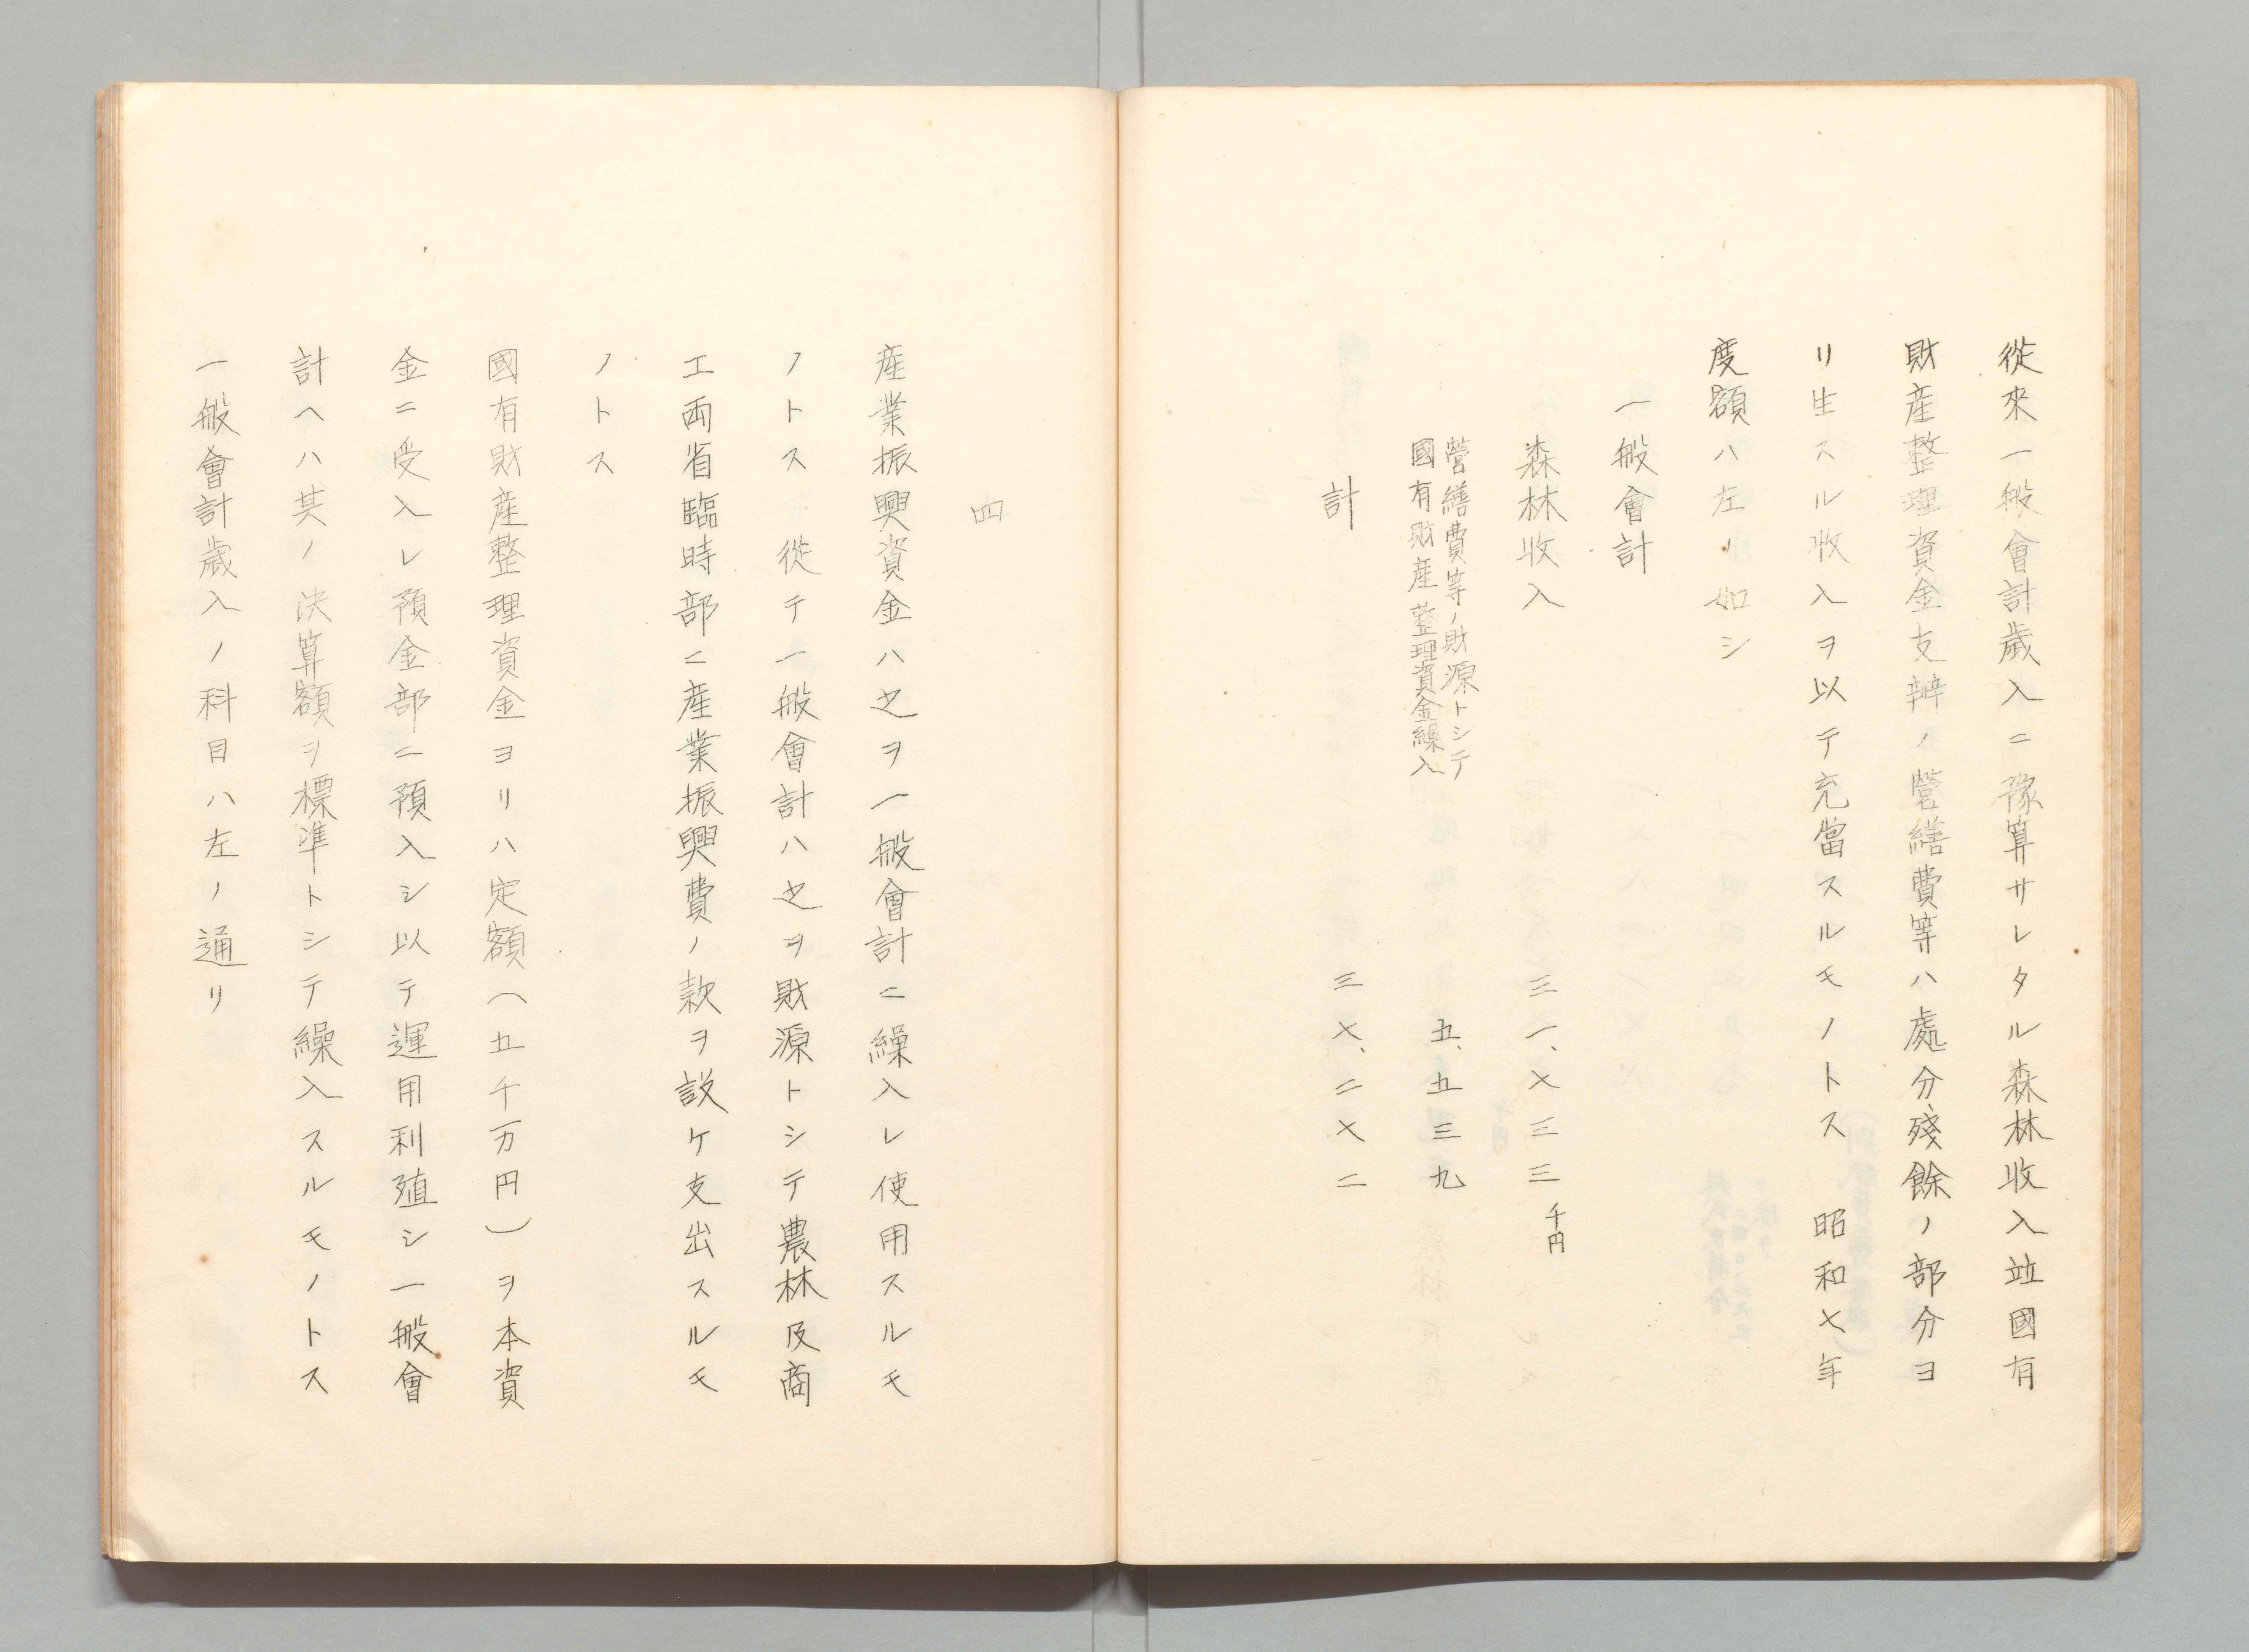 從來一般會計歳入ニ豫算サレタル森林收入竝國有
財産整理資金支辨ノ營繕費等ハ處分殘餘ノ部分ヨ
リ生スル收入ヲ以テ充當スルモノトス　昭和七年
度額ハ左ノ如シ
一般會計
森林收入　三一、七三三千円
營繕費等ノ財源トシテ
國有財産整理資金繰入　五、五三九
計　三七、二七二
四
産業振興資金ハ之ヲ一般會計ニ繰入レ使用スルモ
ノトス　從テ一般會計ハ之ヲ財源トシテ農林及商
工両省臨時部ニ産業振興費ノ款ヲ設ケ支出スルモ
ノトス
國有財産整理資金ヨリハ定額（五千万円）ヲ本資
金ニ受入レ預金部ニ預入シ以テ運用利殖シ一般會
計ヘハ其ノ決算額ヲ標準トシテ繰入スルモノトス
一般會計歳入ノ科目ハ左ノ通リ